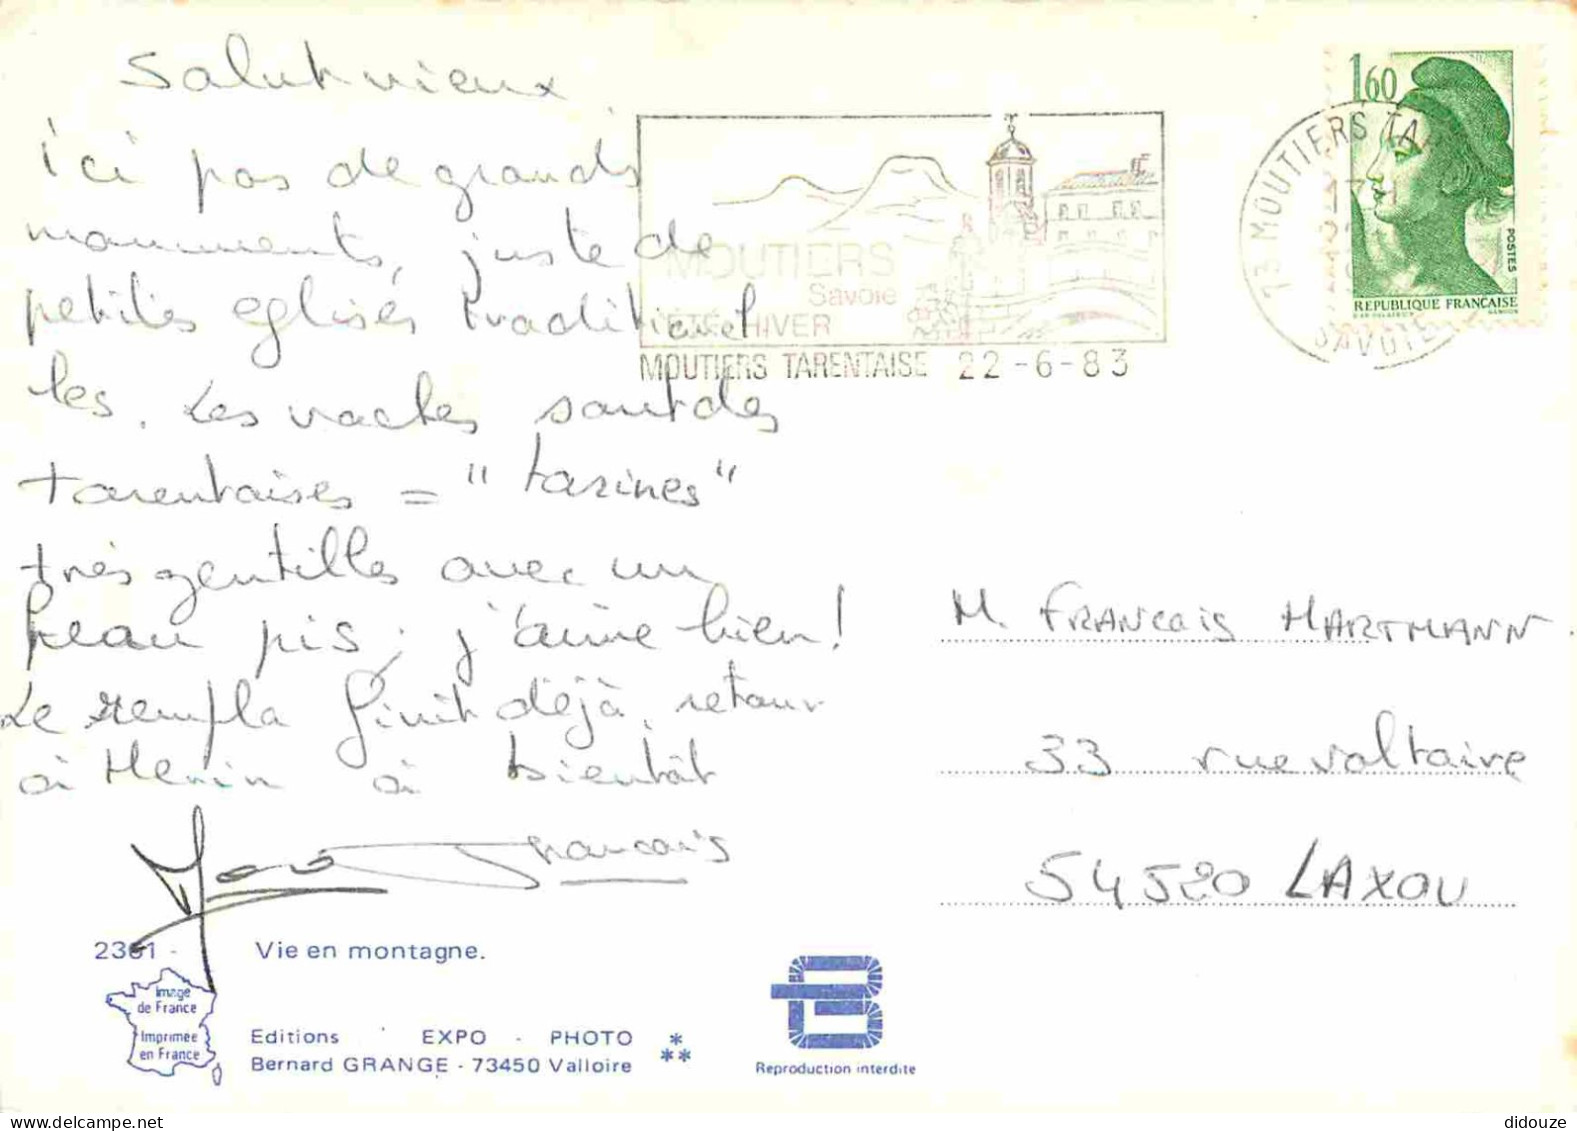 Salut vieux,
ici pas de grands
monuments, juste de
petites eglises traditionnel
les. Les vaches sont des
tarentaises = "tarines"
très gentilles avec un
beau pis, j'aime bien!
Le rempla finit déjà, retour
à Henin à bientôt
Francois
MOUTIERS
Savoie
ÉTÉ HIVER
MOUTIERS TARENTAISE 22-6-83
73 MOUTIERS TA
SAVOIE
1,60
POSTES
REPUBLIQUE FRANÇAISE
M. FRANCOIS HARTMANN.
33 rue voltaire
54520 LAXOU
2361 - Vie en montagne.
Image
de France
Imprimée
en France
Editions EXPO - PHOTO
Bernard GRANGE - 73450 Valloire
Reproduction interdite
didouze